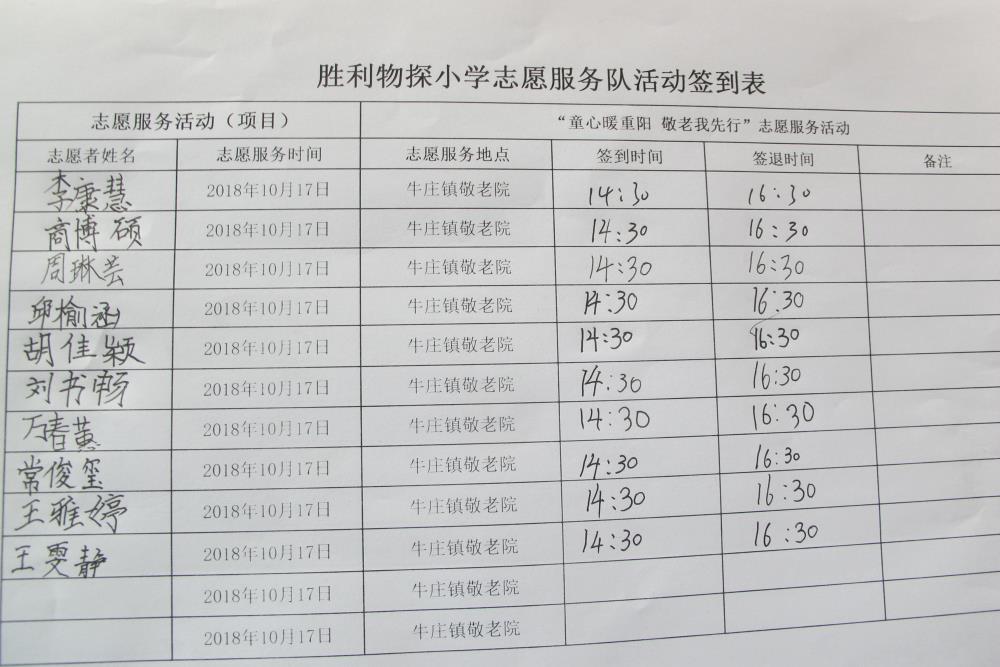 胜利物探小学志愿服务队活动签到表
志愿服务活动（项目） “童心暖重阳 敬老我先行”志愿服务活动
志愿者姓名 志愿服务时间 志愿服务地点 签到时间 签退时间 备注
李康慧 2018年10月17日 牛庄镇敬老院 14:30 16:30
商博硕 2018年10月17日 牛庄镇敬老院 14:30 16:30
周琳芸 2018年10月17日 牛庄镇敬老院 14:30 16:30
邱榆涵 2018年10月17日 牛庄镇敬老院 14:30 16:30
胡佳颖 2018年10月17日 牛庄镇敬老院 14:30 16:30
刘书畅 2018年10月17日 牛庄镇敬老院 14:30 16:30
万春蕙 2018年10月17日 牛庄镇敬老院 14:30 16:30
常俊玺 2018年10月17日 牛庄镇敬老院 14:30 16:30
王雅婷 2018年10月17日 牛庄镇敬老院 14:30 16:30
王雯静 2018年10月17日 牛庄镇敬老院 14:30 16:30
2018年10月17日 牛庄镇敬老院
2018年10月17日 牛庄镇敬老院